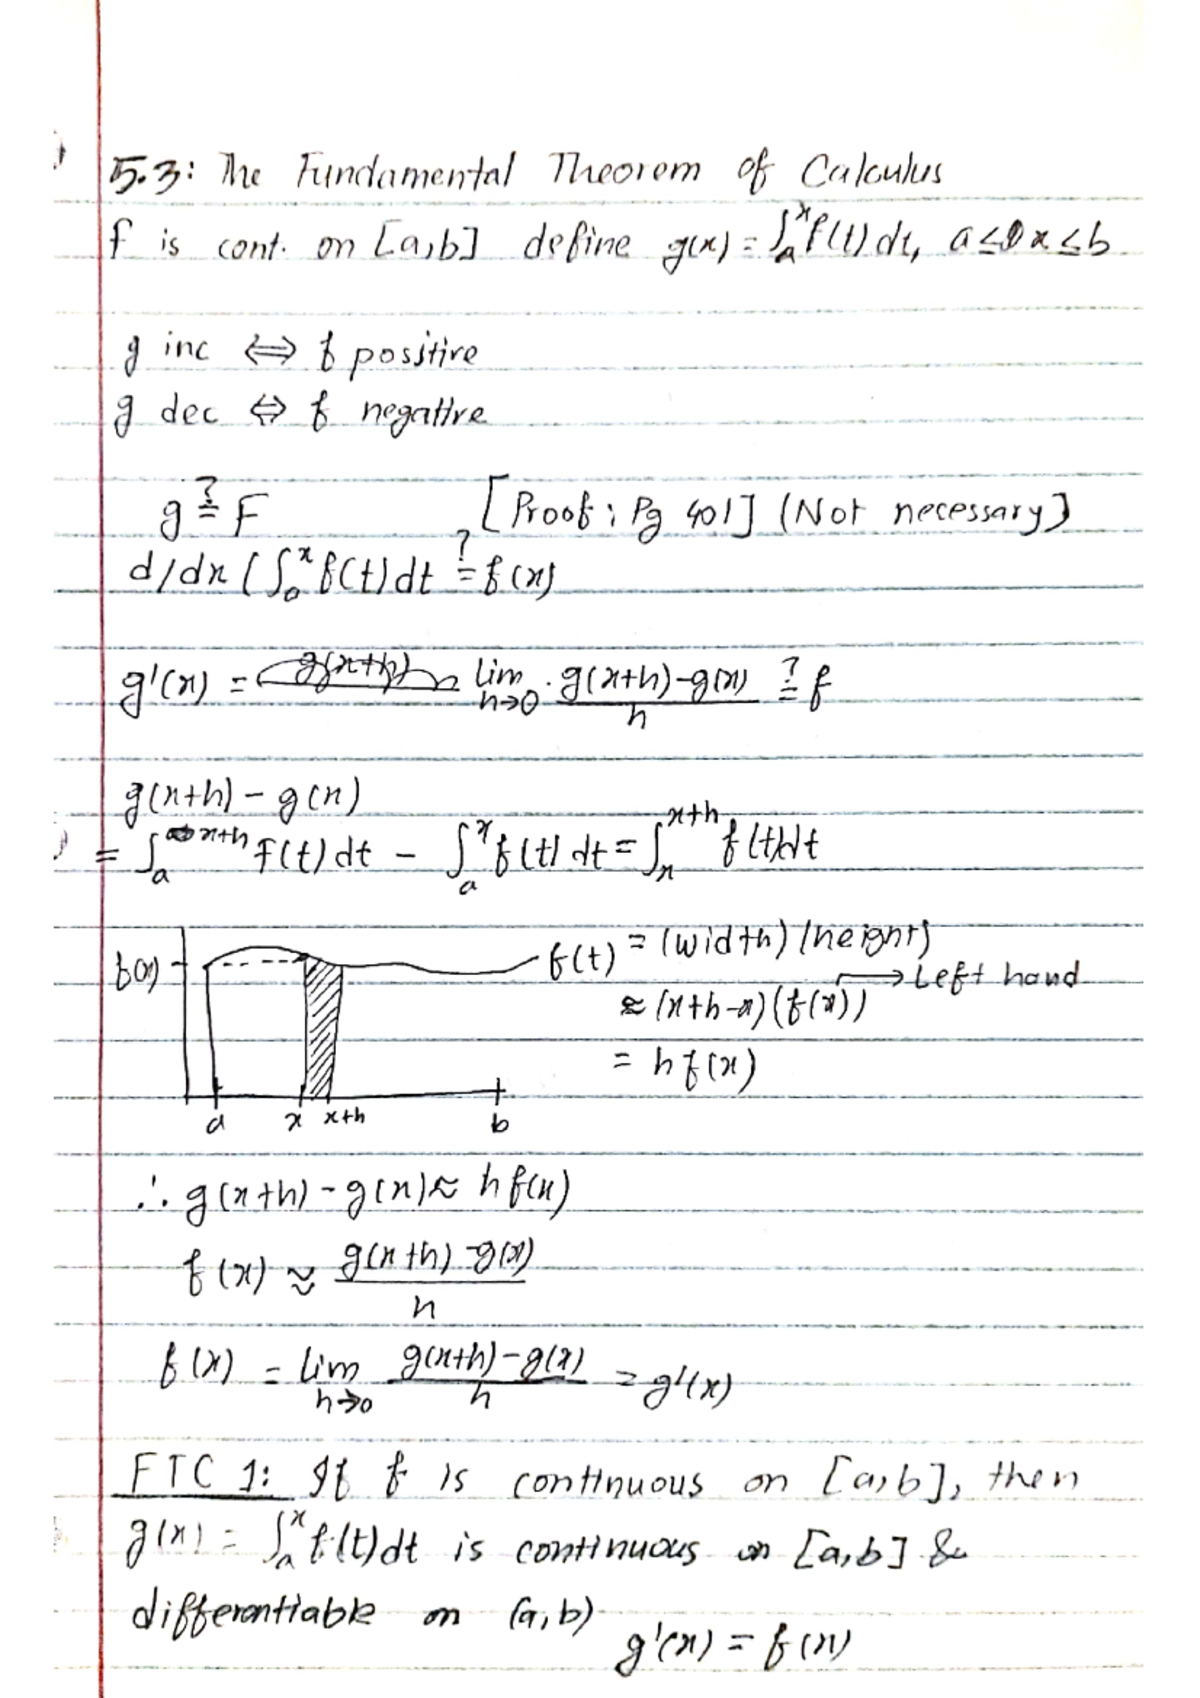 5.3: The Fundamental Theorem of Calculus
f is cont. on [a,b] define g(x) = ∫ₐˣ f(t) dt, a ≤ x ≤ b
g inc ⟺ f positive
g dec ⟺ f negative
g ≟ F [Proof: Pg 401] (Not necessary)
d/dx (∫ₐˣ f(t) dt ≟ f(x)
g'(x) = lim h→0 g(x+h)-g(x) / h ≟ f
g(x+h) - g(x)
= ∫ₐˣ⁺ʰ F(t) dt - ∫ₐˣ f(t) dt = ∫ₓˣ⁺ʰ f(t)dt
f(x) f(t) = (width) (height)
→ Left hand
≈ (x+h-x)(f(x))
= h f(x)
a x x+h b
∴ g(x+h) - g(x) ≈ h f(x)
f(x) ≈ g(x+h) - g(x) / h
f(x) = lim h→0 g(x+h)-g(x) / h = g'(x)
FTC 1: If f is continuous on [a,b], then
g(x) = ∫ₐˣ f(t)dt is continuous on [a,b] &
differentiable on (a,b)
g'(x) = f(x)